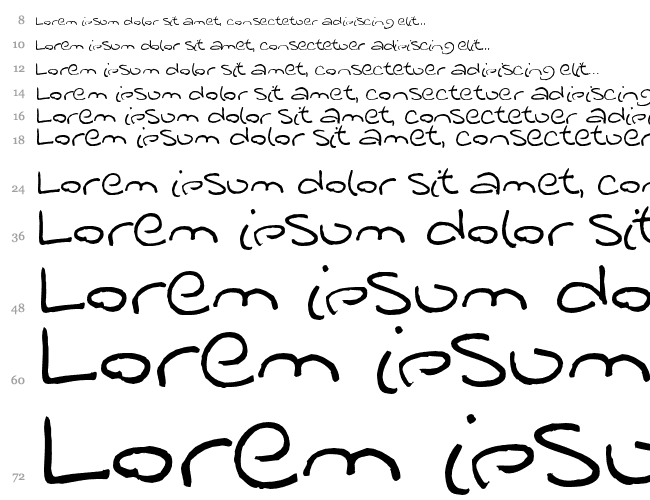 8 Lorem ipsum dolor sit amet, consectetuer adipiscing elit...
10 Lorem ipsum dolor sit amet, consectetuer adipiscing elit...
12 Lorem ipsum dolor sit amet, consectetuer adipiscing elit...
14 Lorem ipsum dolor sit amet, consectetuer adipiscing
16 Lorem ipsum dolor sit amet, consectetuer adipi
18 Lorem ipsum dolor sit amet, consectetuer
24 Lorem ipsum dolor sit amet, con
36 Lorem ipsum dolor sit
48 Lorem ipsum do
60 Lorem ipsum
72 Lorem ipsu